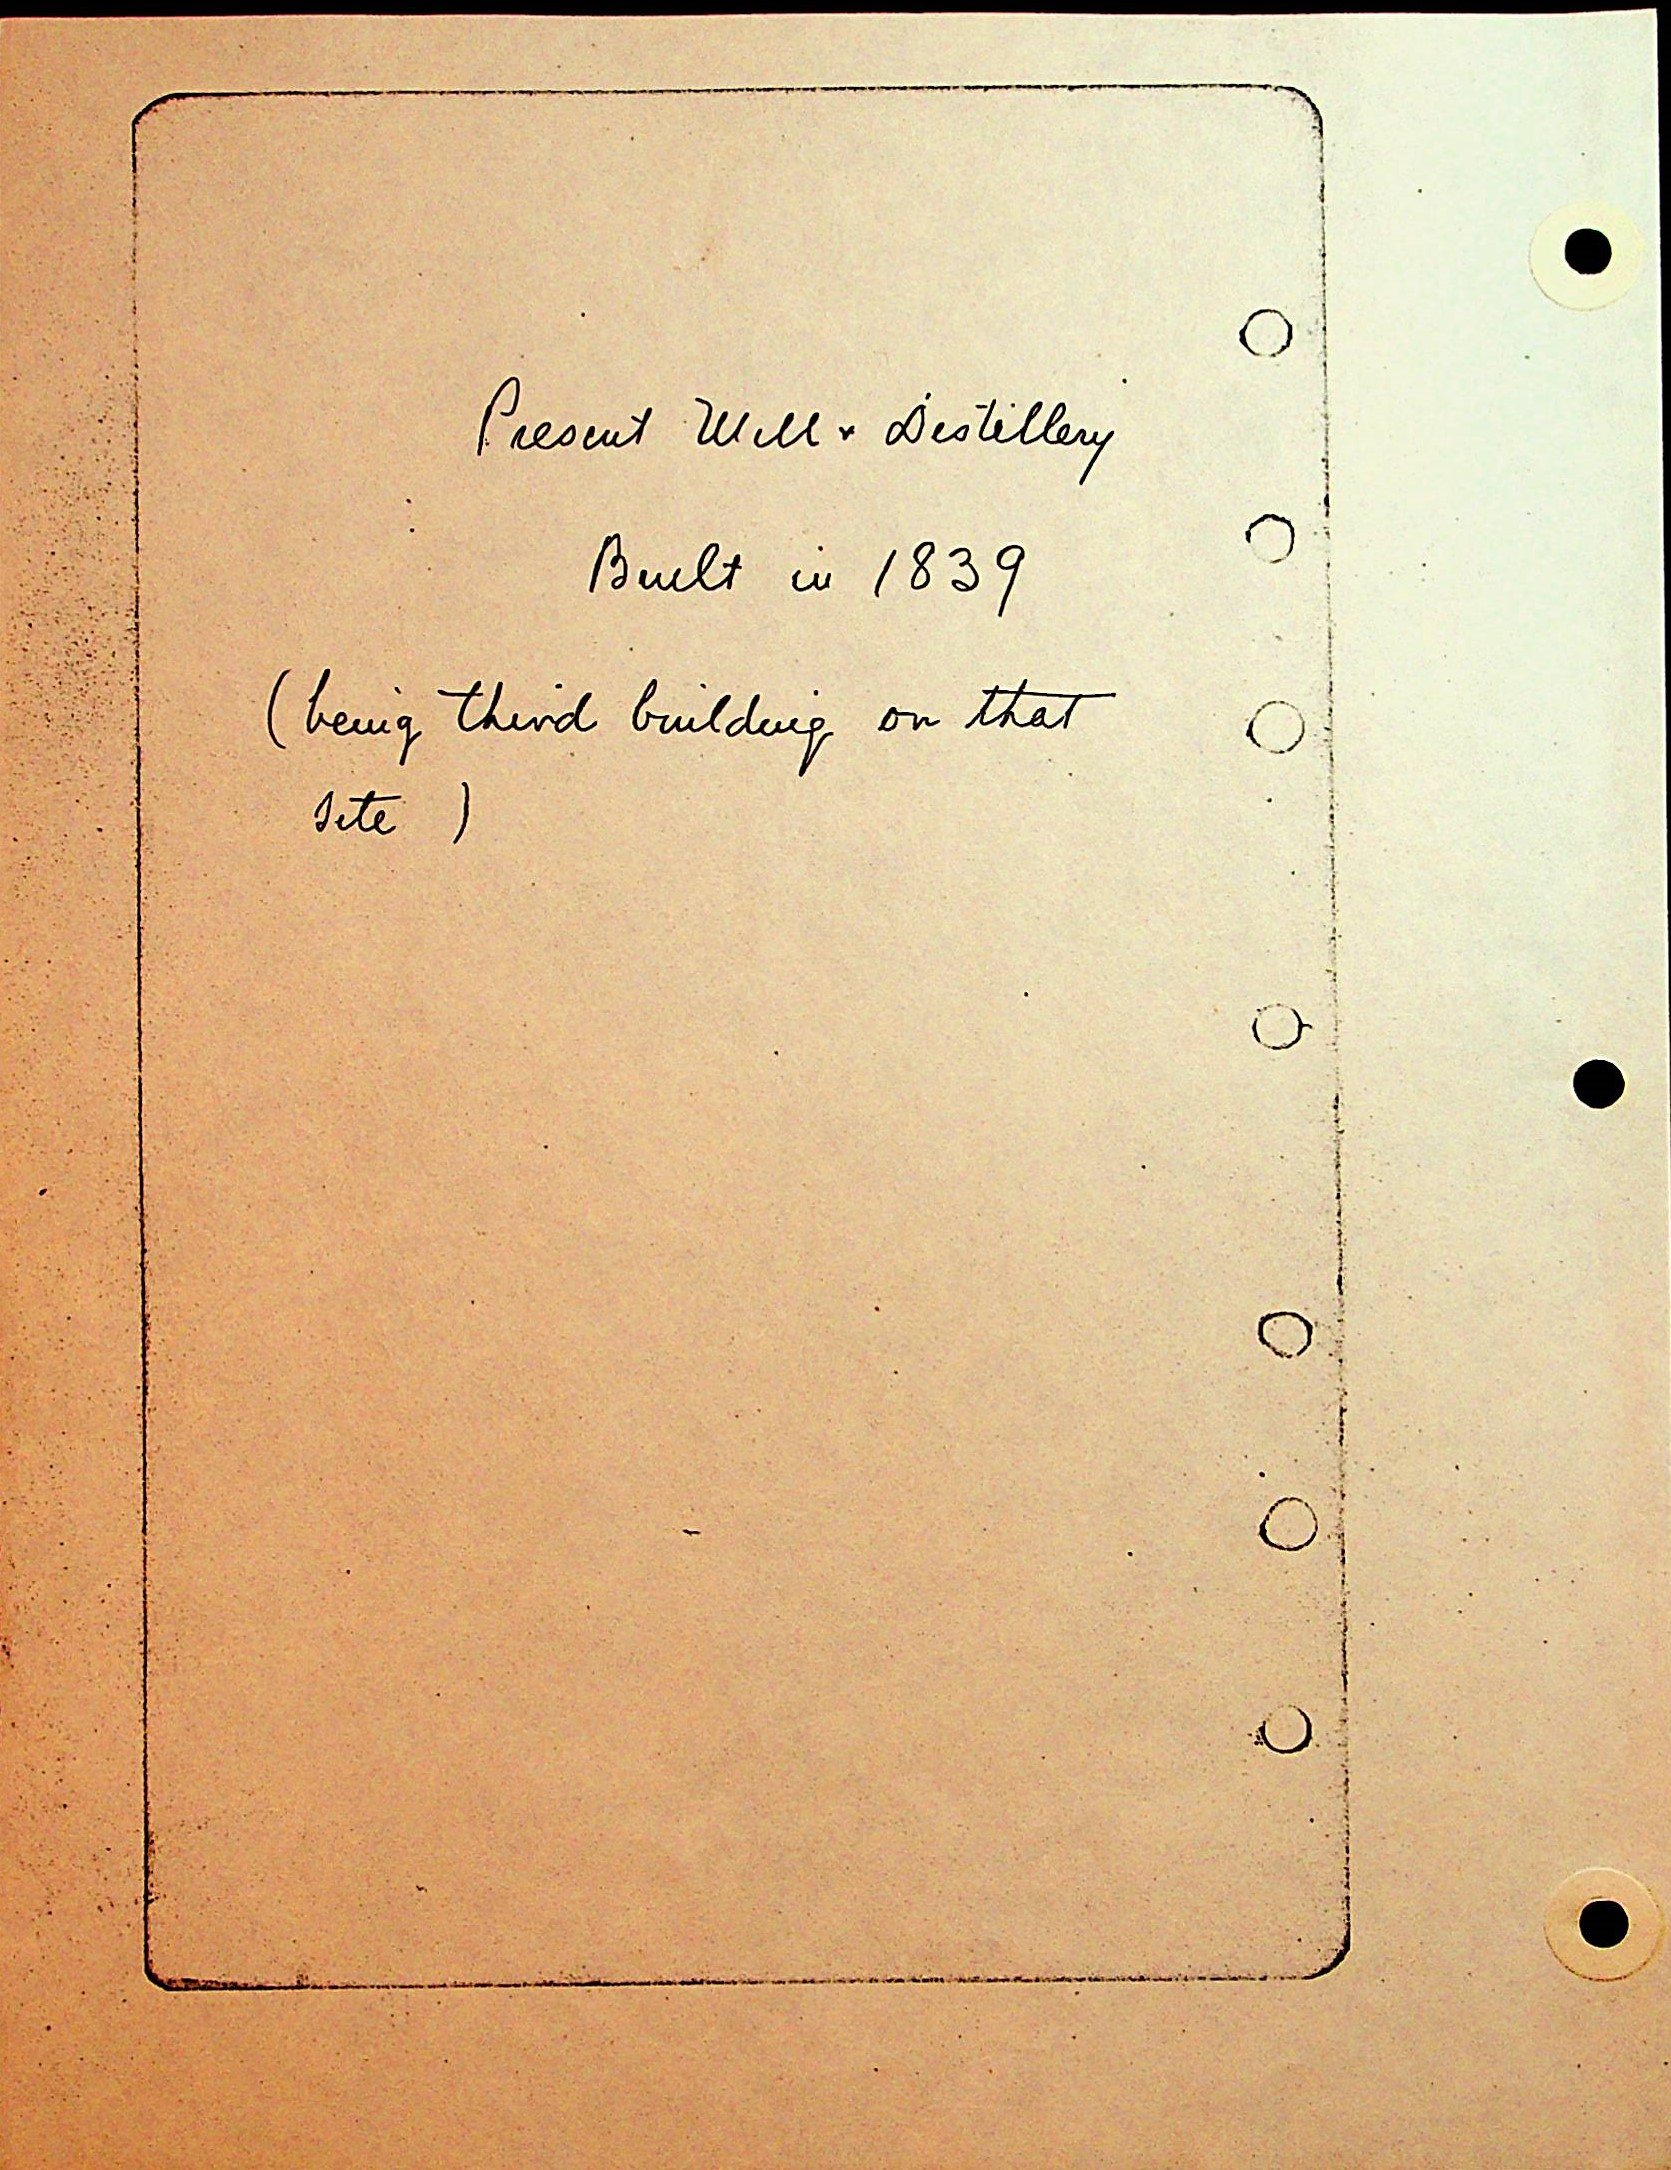 Present Mill & Distillery
Built in 1839
(being third building on that
site )